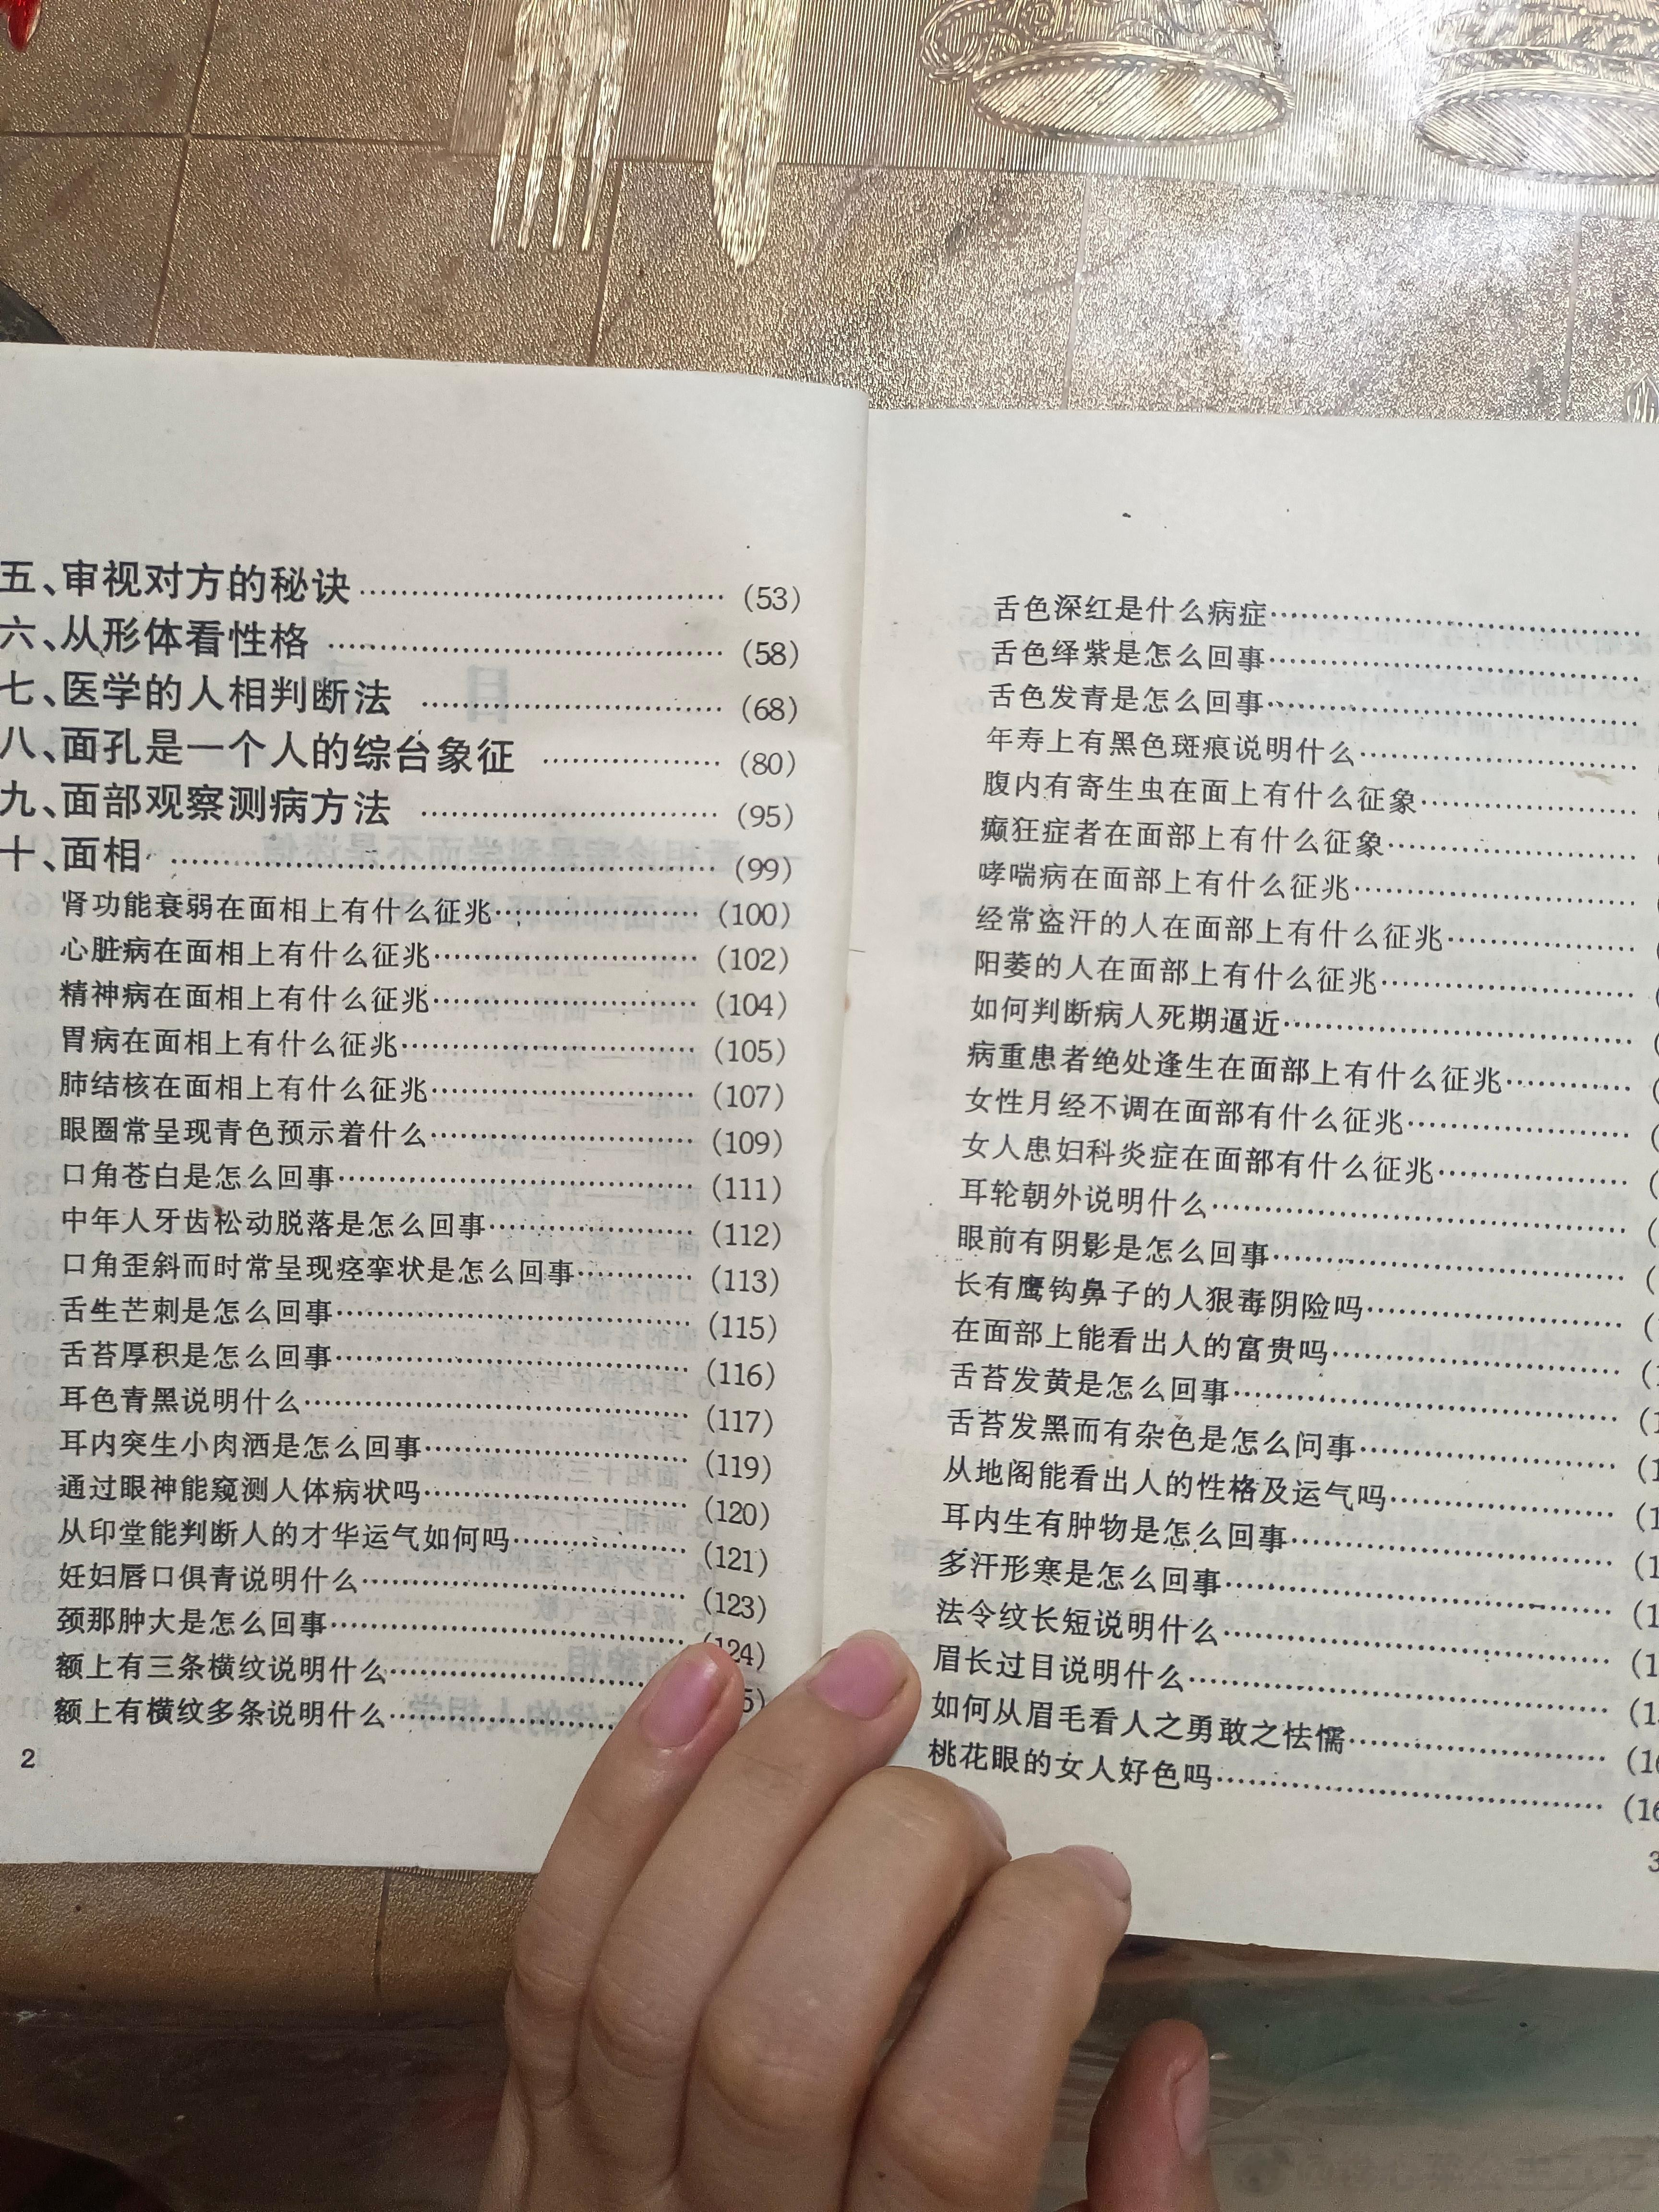 五、审视对方的秘诀……………………(53)
六、从形体看性格……………………(58)
七、医学的人相判断法……………………(68)
八、面孔是一个人的综台象征……………(80)
九、面部观察测病方法……………………(95)
十、面相……………………………………(99)
肾功能衰弱在面相上有什么征兆……………(100)
心脏病在面相上有什么征兆…………………(102)
精神病在面相上有什么征兆…………………(104)
胃病在面相上有什么征兆……………………(105)
肺结核在面相上有什么征兆…………………(107)
眼圈常呈现青色预示着什么…………………(109)
口角苍白是怎么回事…………………………(111)
中年人牙齿松动脱落是怎么回事……………(112)
口角歪斜而时常呈现痉挛状是怎么回事……(113)
舌生芒刺是怎么回事…………………………(115)
舌苔厚积是怎么回事…………………………(116)
耳色青黑说明什么……………………………(117)
耳内突生小肉洒是怎么回事…………………(119)
通过眼神能窥测人体病状吗…………………(120)
从印堂能判断人的才华运气如何吗…………(121)
妊妇唇口俱青说明什么………………………(123)
颈那肿大是怎么回事…………………………(124)
额上有三条横纹说明什么……………………5)
额上有横纹多条说明什么……………………
2
舌色深红是什么病症…………………………
舌色绎紫是怎么回事…………………………
舌色发青是怎么回事…………………………
年寿上有黑色斑痕说明什么…………………
腹内有寄生虫在面上有什么征象……………
癫狂症者在面部上有什么征象………………
哮喘病在面部上有什么征兆…………………
经常盗汗的人在面部上有什么征兆…………
阳萎的人在面部上有什么征兆………………
如何判断病人死期逼近………………………
病重患者绝处逢生在面部上有什么征兆……
女性月经不调在面部有什么征兆……………
女人患妇科炎症在面部有什么征兆…………
耳轮朝外说明什么……………………………
眼前有阴影是怎么回事………………………
长有鹰钩鼻子的人狠毒阴险吗………………
在面部上能看出人的富贵吗…………………
舌苔发黄是怎么回事…………………………
舌苔发黑而有杂色是怎么问事………………
从地阁能看出人的性格及运气吗……………
耳内生有肿物是怎么回事……………………
多汗形寒是怎么回事…………………………
法令纹长短说明什么…………………………
眉长过目说明什么……………………………
如何从眉毛看人之勇敢之怯懦………………
桃花眼的女人好色吗…………………………
3